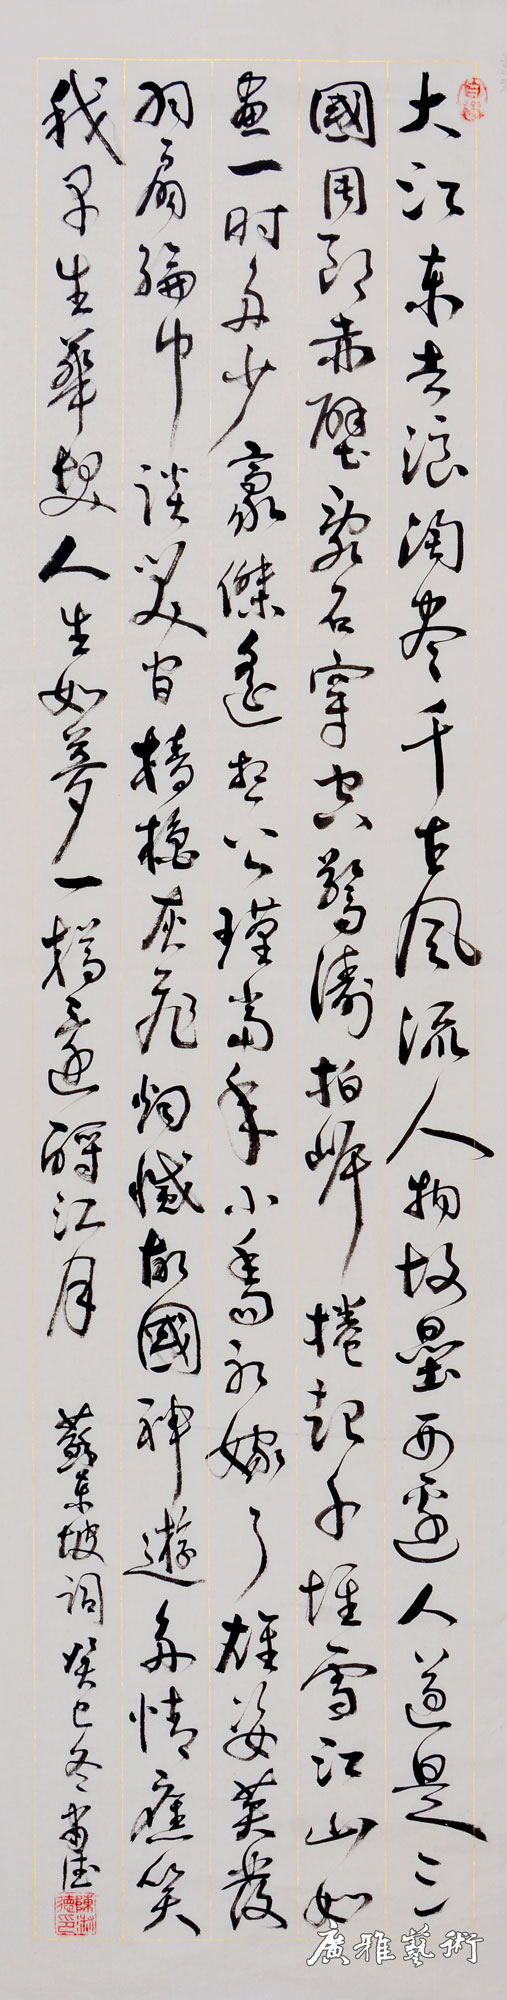 大江东去浪淘尽千古风流人物故垒西边人道是三
國周郎赤壁亂石穿空驚濤拍岸捲起千堆雪江山如
畫一时多少豪傑遙想公瑾當年小喬初嫁了雄姿英发
羽扇綸巾談笑间樯櫓灰飛烟滅故國神遊多情應笑
我早生華发人生如夢一樽還酹江月
蘇東坡詞癸巳冬書德
廣雅藝術